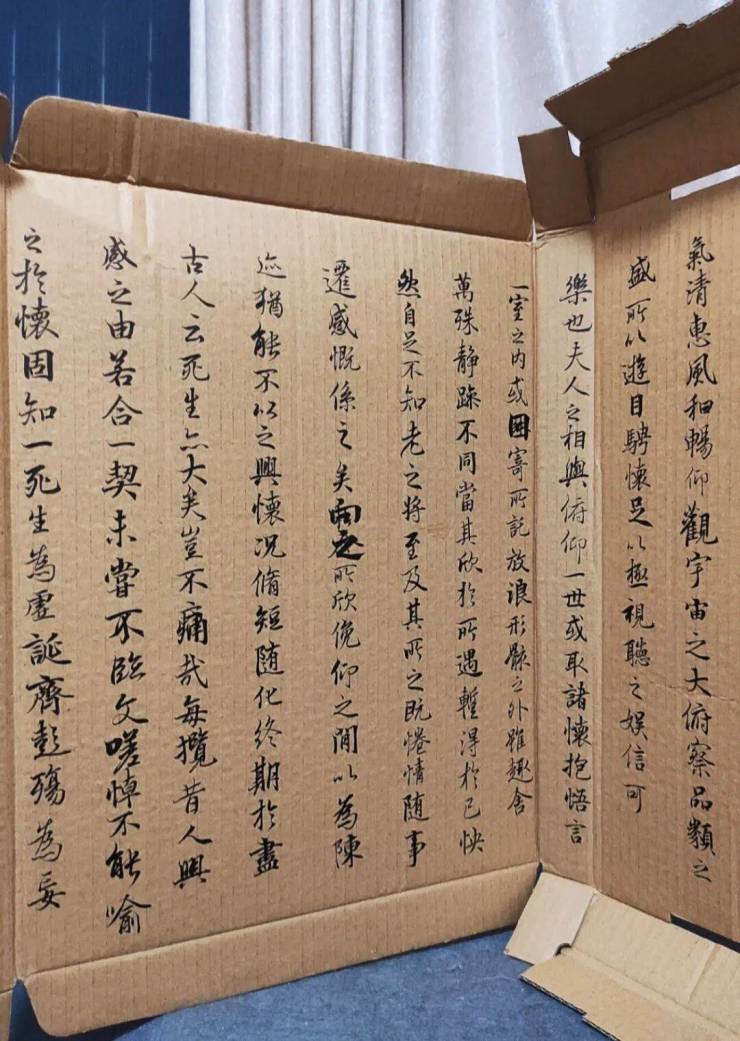 氣清惠風和暢仰觀宇宙之大俯察品類之
盛所以遊目騁懷足以極視聽之娱信可
樂也夫人之相與俯仰一世或取諸懷抱悟言
一室之内或因寄所託放浪形骸之外雖趣舍
萬殊静躁不同當其欣於所遇暫得於己怏
然自足不知老之將至及其所之既惓情随事
遷感慨係之矣向之所欣俛仰之間以為陳
迹猶能不以之興懷况脩短随化終期於盡
古人云死生亦大矣豈不痛哉每攬昔人興
感之由若合一契未嘗不臨文嗟悼不能喻
之於懷固知一死生為虚誕齊彭殤為妄